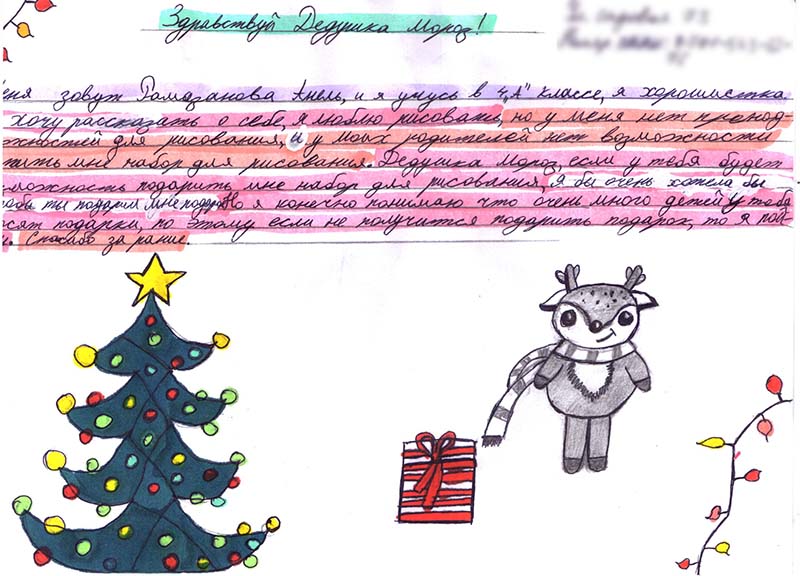 Здравствуй Дедушка Мороз!
еня зовут Рамазанова Анель, и я учусь в 4 „А" классе, я хорошистка
хочу рассказать о себе, я люблю рисовать, но у меня нет пренод-
жностей для рисования, и у моих родителей нет возможности
пить мне набор для рисования. Дедушка Мороз, если у тебя будет
зможность подарить мне набор для рисования, я бы очень хотела бы
тобы ты подарил мне подарок Но я конечно понимаю что очень много детей у тебя
осят подарки, по этому если не получится подарить подарок, то я пой-
у. Спасибо за рание.